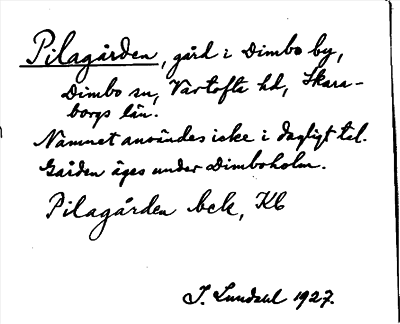 Pilagården, gård i Dimbo by,
Dimbo sn, Vartofta hd, Skara-
borgs län.
Namnet användes icke i dagligt tal.
Gården äges under Dimboholm.
Pilagården bck, Kb
J. Lundahl 1927.